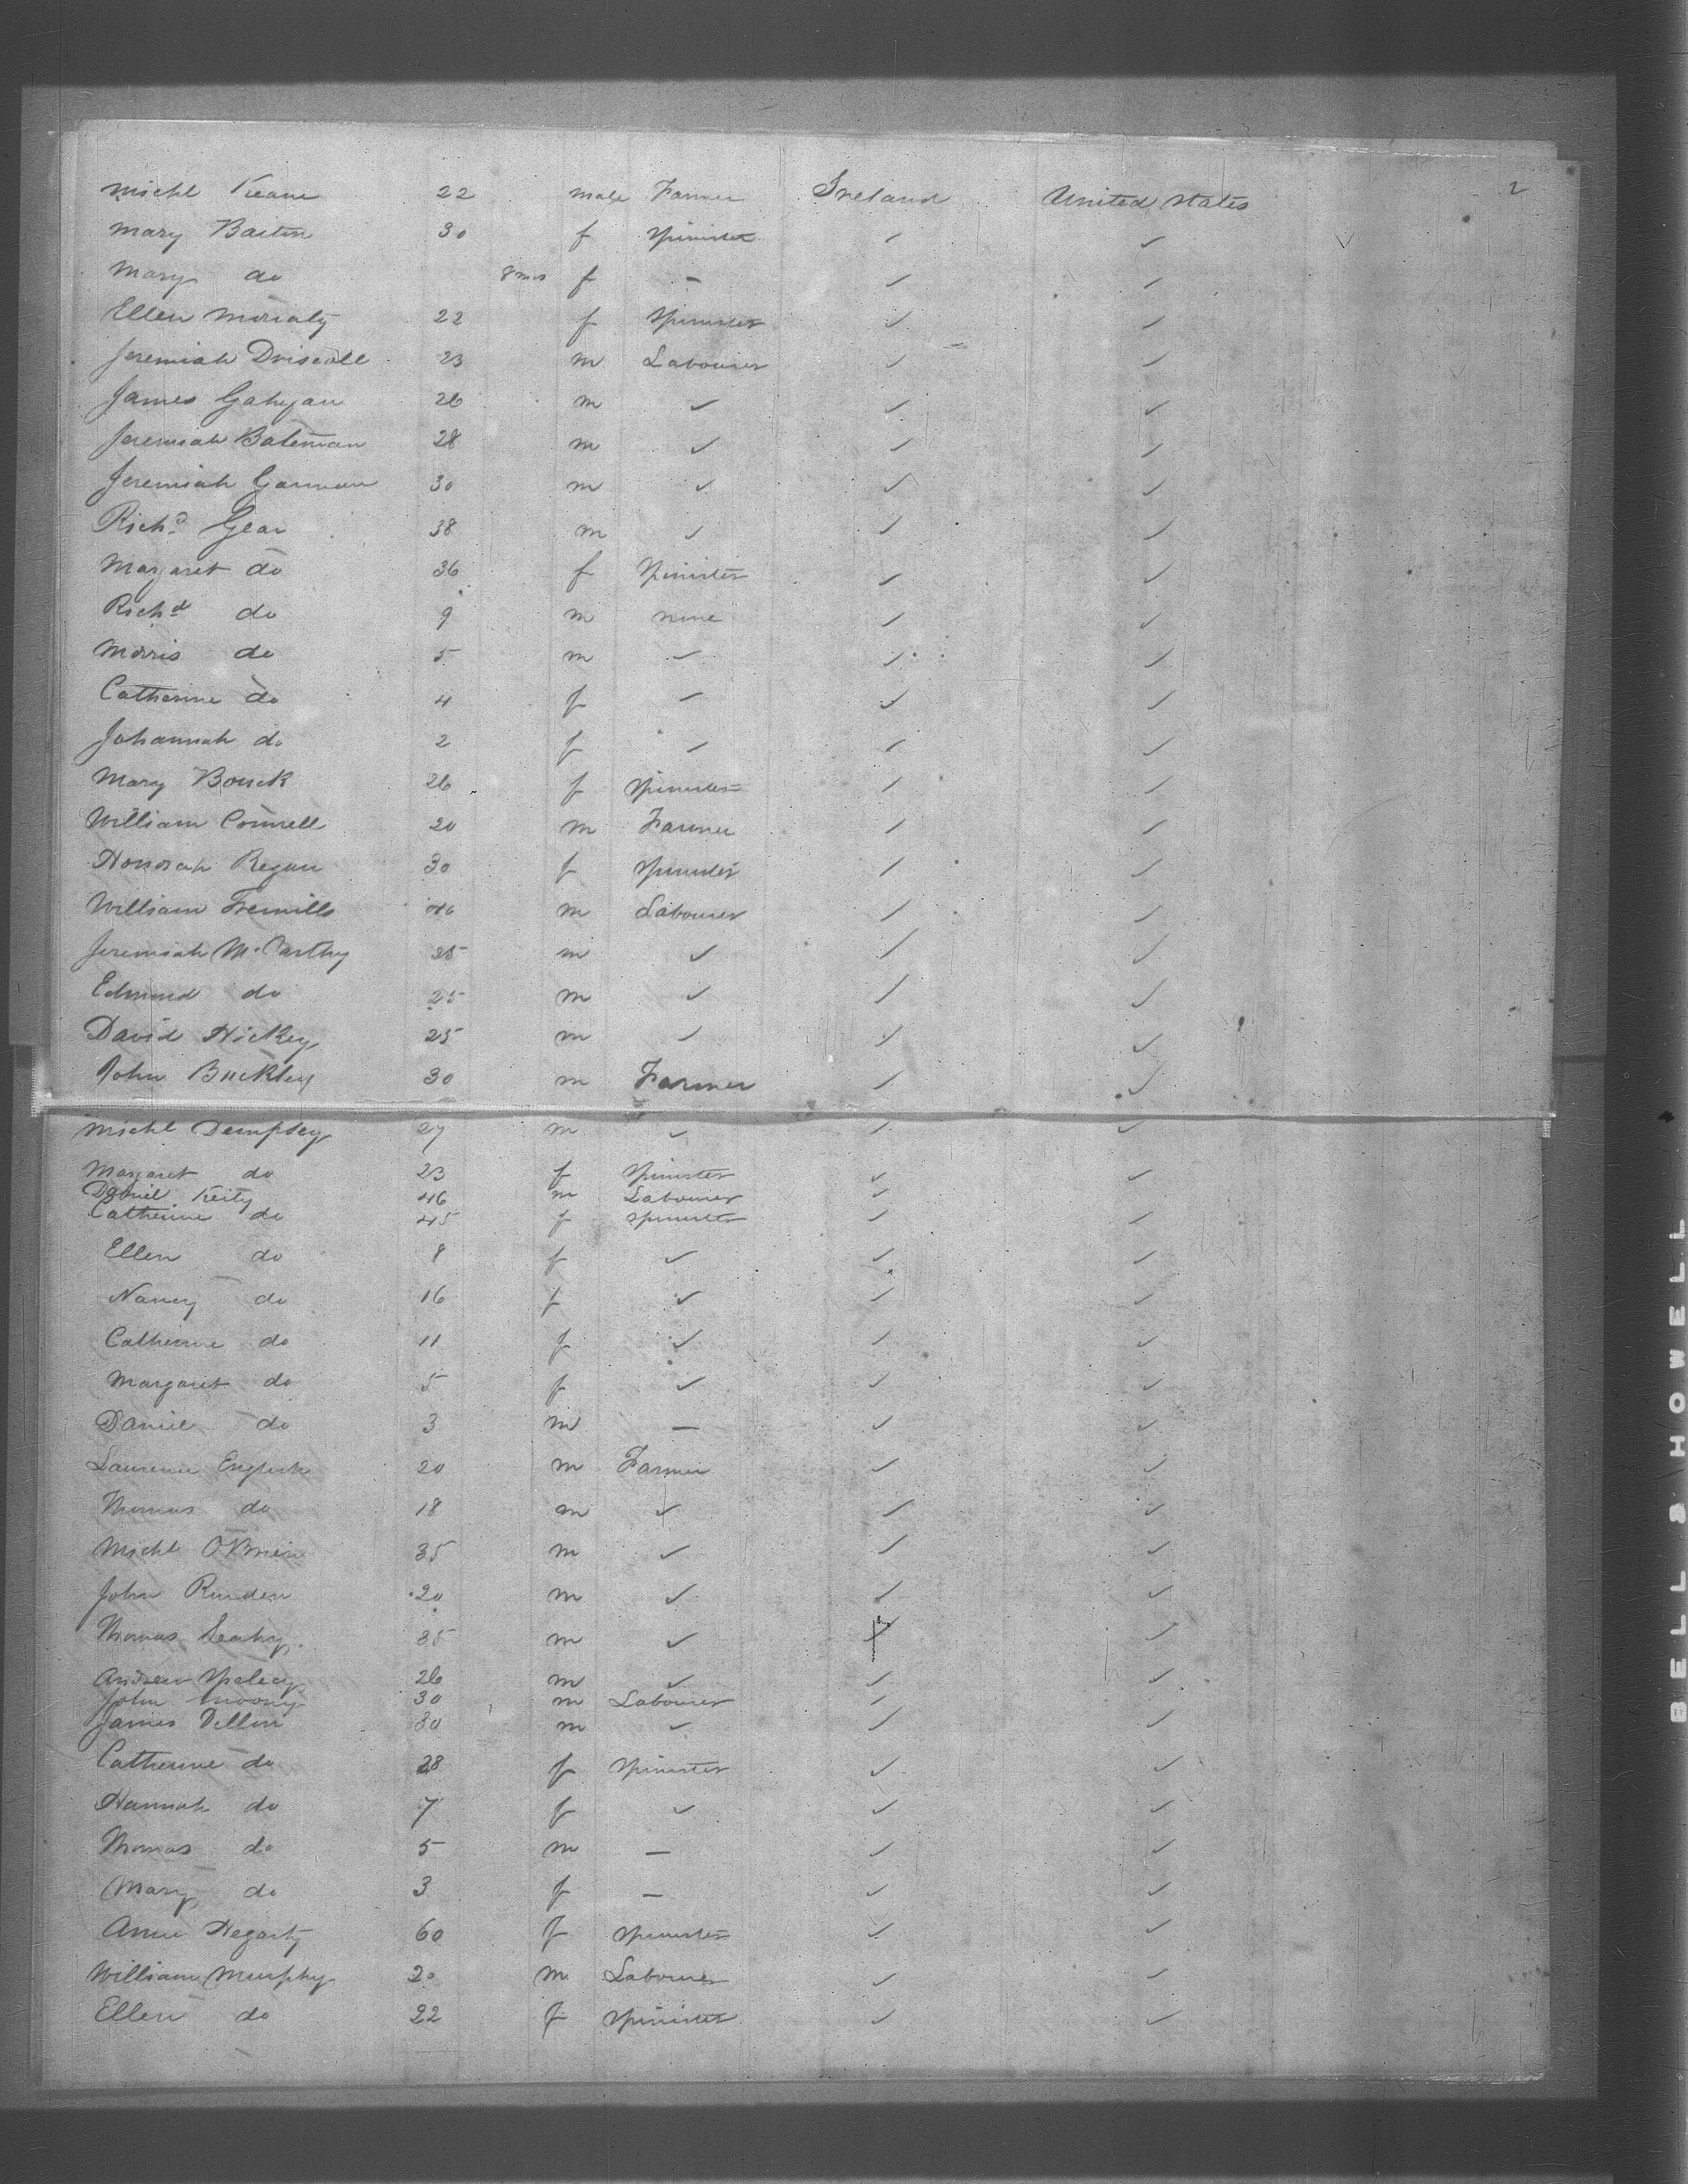 2
Michl Keane 22 male Farmer Ireland United States
Mary Barton 30 f Spinster ✓ ✓
Mary do 8 mos f — ✓ ✓
Ellen Moriaty 22 f Spinster ✓ ✓
Jeremiah Driscoll 23 m Labourer ✓ ✓
James Gahgan 26 m ✓ ✓ ✓
Jeremiah Bateman 28 m ✓ ✓ ✓
Jeremiah Gorman 30 m ✓ ✓ ✓
Richd Gear 38 m ✓ ✓ ✓
Margaret do 36 f Spinster ✓ ✓
Richd do 9 m none ✓ ✓
Morris do 5 m ✓ ✓ ✓
Catherine do 4 f ✓ ✓ ✓
Johannah do 2 f ✓ ✓ ✓
Mary Bouck 26 f Spinster ✓ ✓
William Connell 20 m Farmer ✓ ✓
Honorah Regan 30 f Spinster ✓ ✓
William m Labourer ✓ ✓
Jeremiah McCarthy 25 m ✓ ✓ ✓
Edmund do 25 m ✓ ✓ ✓
David Hickey 25 m ✓ ✓ ✓
John Buckley 30 m Farmer ✓ ✓
Michl Dempsey 27 m ✓ ✓ ✓
Margaret do 23 f Spinster ✓ ✓
Daniel Keity 46 m Labourer ✓
Catherine do 45 f Spinster ✓ ✓
Ellen do 8 f ✓ ✓ ✓
Nancy do 16 f ✓ ✓ ✓
Catherine do 11 f ✓ ✓ ✓
Margaret do 5 f ✓ ✓ ✓
Daniel do 3 m — ✓ ✓
Laurence English 20 m Farmer ✓ ✓
Thomas do 18 m ✓ ✓ ✓
Michl OBrien 35 m ✓ ✓ ✓
John Runden 20 m ✓ ✓ ✓
Thomas Leahy 35 m ✓ ✓ ✓
Andrew 26 m ✓ ✓ ✓
John 30 m Labourer ✓
James Dillon 30 m ✓ ✓ ✓
Catherine do 28 f Spinster ✓ ✓
Hannah do 7 f ✓ ✓ ✓
Thomas do 5 m — ✓ ✓
Mary do 3 f — ✓ ✓
Anne Hegarty 60 f Spinster ✓ ✓
William Murphy 20 m Labourer ✓ ✓
Ellen do 22 f Spinster ✓ ✓
BELL & HOWELL